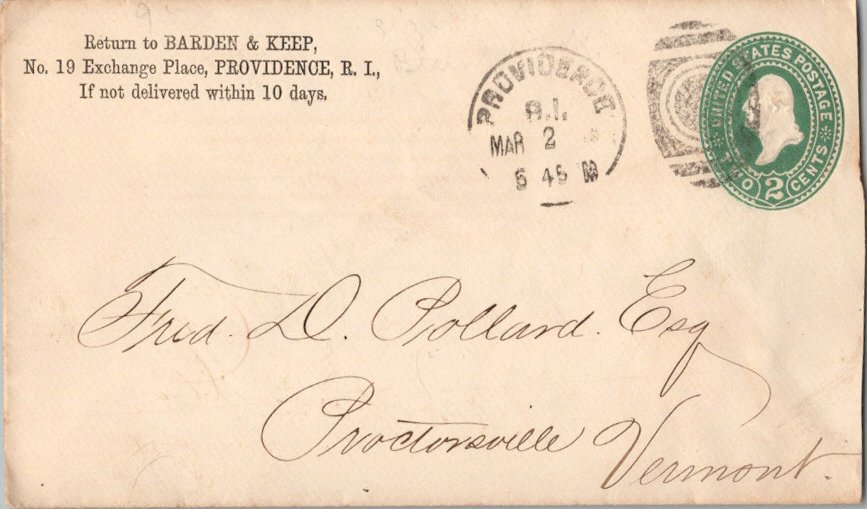 Return to BARDEN & KEEP,
No. 19 Exchange Place, PROVIDENCE, R. I.,
If not delivered within 10 days.
PROVIDENCE
R.I.
MAR 2
5 45 M
UNITED STATES POSTAGE
TWO 2 CENTS
Fred. D. Pollard. Esq
Proctorsville
Vermont.